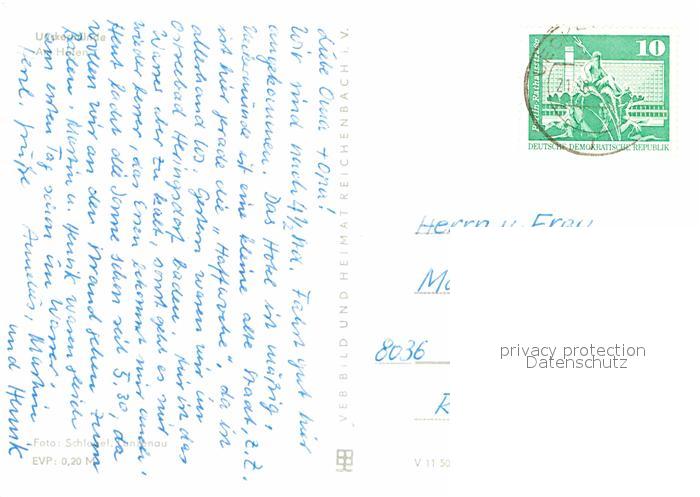 Ueckermünde
Am Hafen
Liebe Oma + Opa!
Wir sind nach 4½ Std. Fahrt gut hier
angekommen. Das Hotel ist mäßig,
Ueckermünde ist eine kleine alte Stadt, z. Z.
ist hier grade die "Haffwoche", da ist
allerhand los. Gestern waren wir im
Ostseebad Heringsdorf baden. Mir ist das
Wasser aber zu kalt, sonst geht es mir
wieder besser, das Essen bekommt mir auch.
Heut lacht die Sonne schon seit 5.30, da
wollen wir an den Strand gehen zum
Baden. Martin u. Henrik waren gleich
am ersten Tag schon im Wasser.
Herzl. Grüße
Annelies, Martin
und Henrik
Foto: Schlegel,
EVP: 0,20 M
VEB BILD UND HEIMAT REICHENBACH i. V.
V 11 50
Berlin-Rathausstrasse
10
DEUTSCHE DEMOKRATISCHE REPUBLIK
Herrn u. Frau
8036
R
privacy protection
Datenschutz